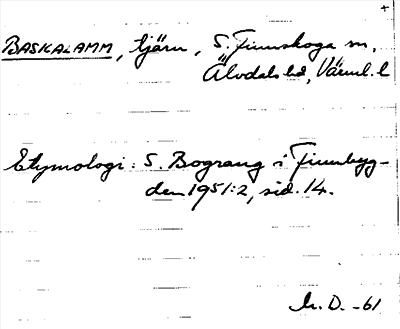 +
BASKALAMM, tjärn, S. Finnskoga sn,
Älvdals hd, Värml. l
Etymologi: S. Bograng i Finnbyg-
den 1951:2, sid. 14.
M. D. -61